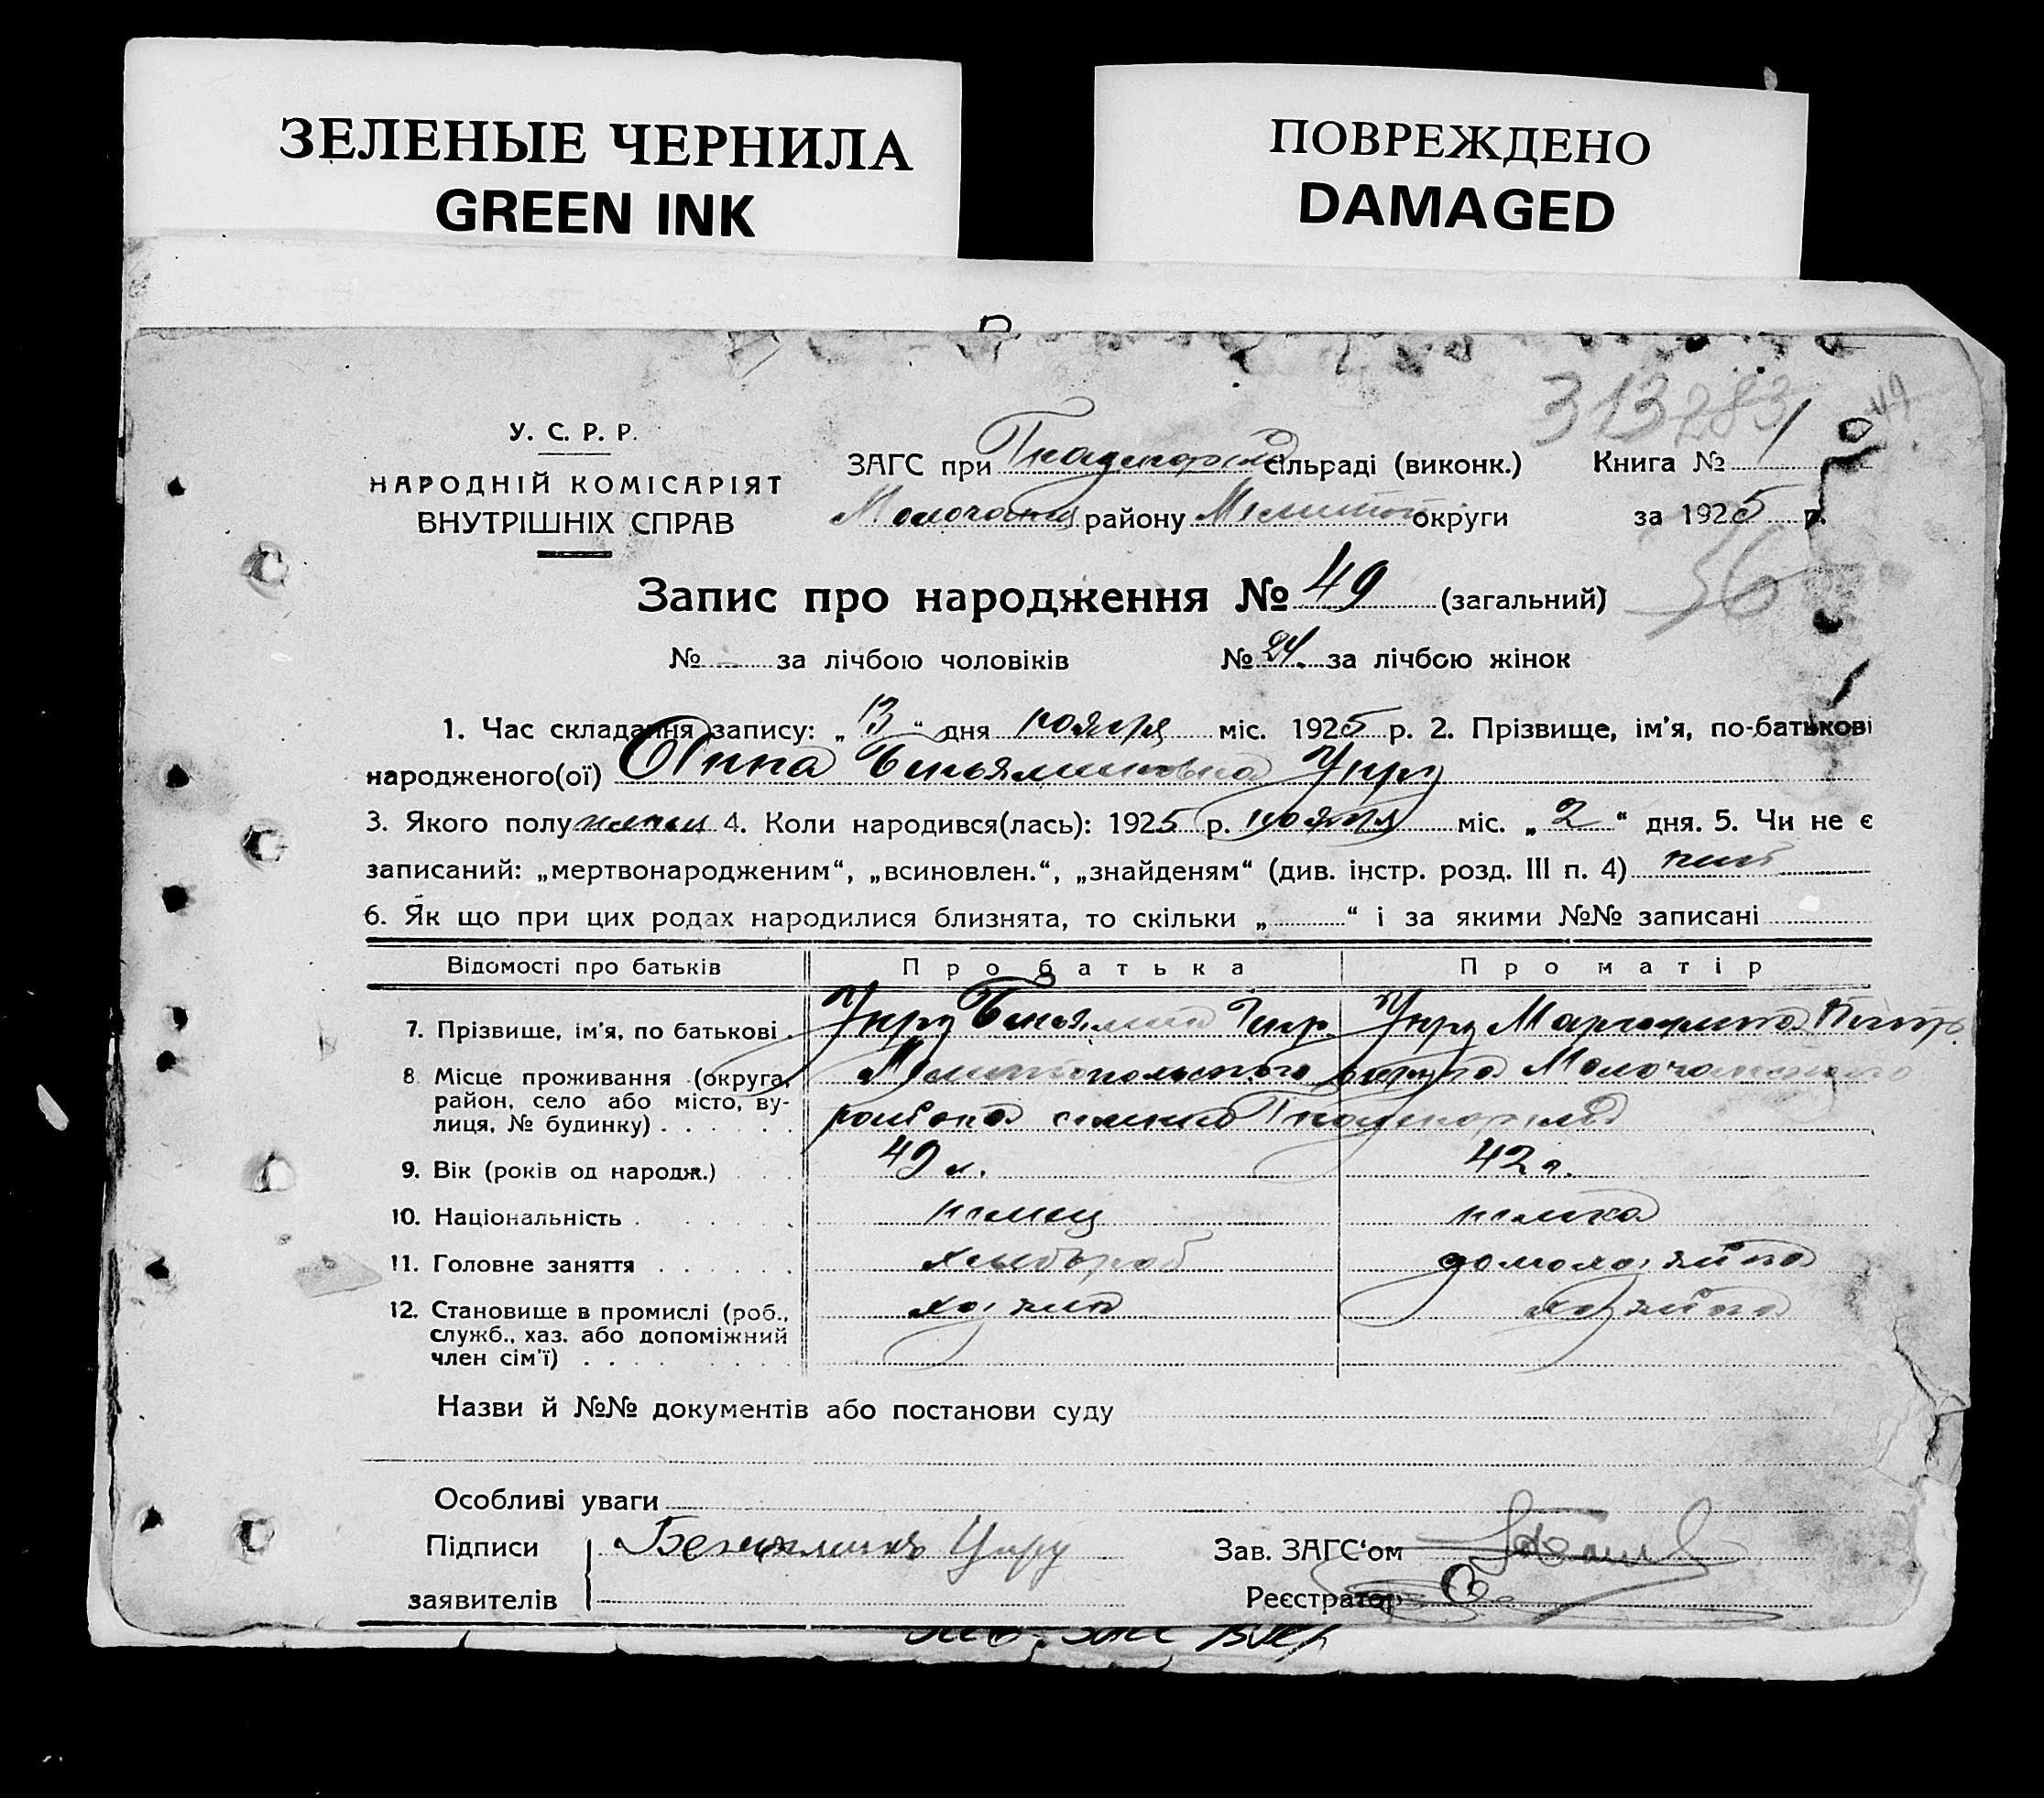 ЗЕЛЕНЫЕ ЧЕРНИЛА
GREEN INK
ПОВРЕЖДЕНО
DAMAGED
313283
49
У. С. Р. Р.
НАРОДНІЙ КОМІСАРІЯТ
ВНУТРІШНІХ СПРАВ
ЗАГС при Гнаденфельд сільраді (виконк.) Книга № 1
Молочанск району Мелитоп округи за 1925 р.
56
Запис про народження № 49 (загальний)
№ - за лічбою чоловіків № 24. за лічбою жінок
1. Час складання запису: „ 13 “ дня ноября міс. 1925 р. 2. Прізвище, ім’я, по-батькові
народженого(ої) Анна Беньяминовна Унру
3. Якого полу женск 4. Коли народився(лась): 1925 р. ноября міс. „ 2 “ дня. 5. Чи не є
записаний: „мертвонародженим“, „всиновлен.“, „знайденям“ (див. інстр. розд. III п. 4) нет
6. Як що при цих родах народилися близнята, то скільки „ “ і за якими №№ записані
Відомості про батьків Про батька Про матір
7. Прізвище, ім’я, по батькові Унру Беньямин Унру Маргарита Петр.
8 Місце проживання (округа, район, село або місто, вулиця, № будинку) Мелитопольского округа Молочанского
района село Гнаденфельд
9. Вік (років од народж.) 49 л. 42 г.
10. Національність немец немка
11. Головне заняття хлебороб домохозяйка
12. Становище в промислі (роб., хозяин хозяйка
служб., хаз. або допоміжний
член сім’ї)
Назви й №№ документів або постанови суду
Особливі уваги
Підписи Беньяминъ Унру Зав. ЗАГС‘ом
заявителів Реєстратор